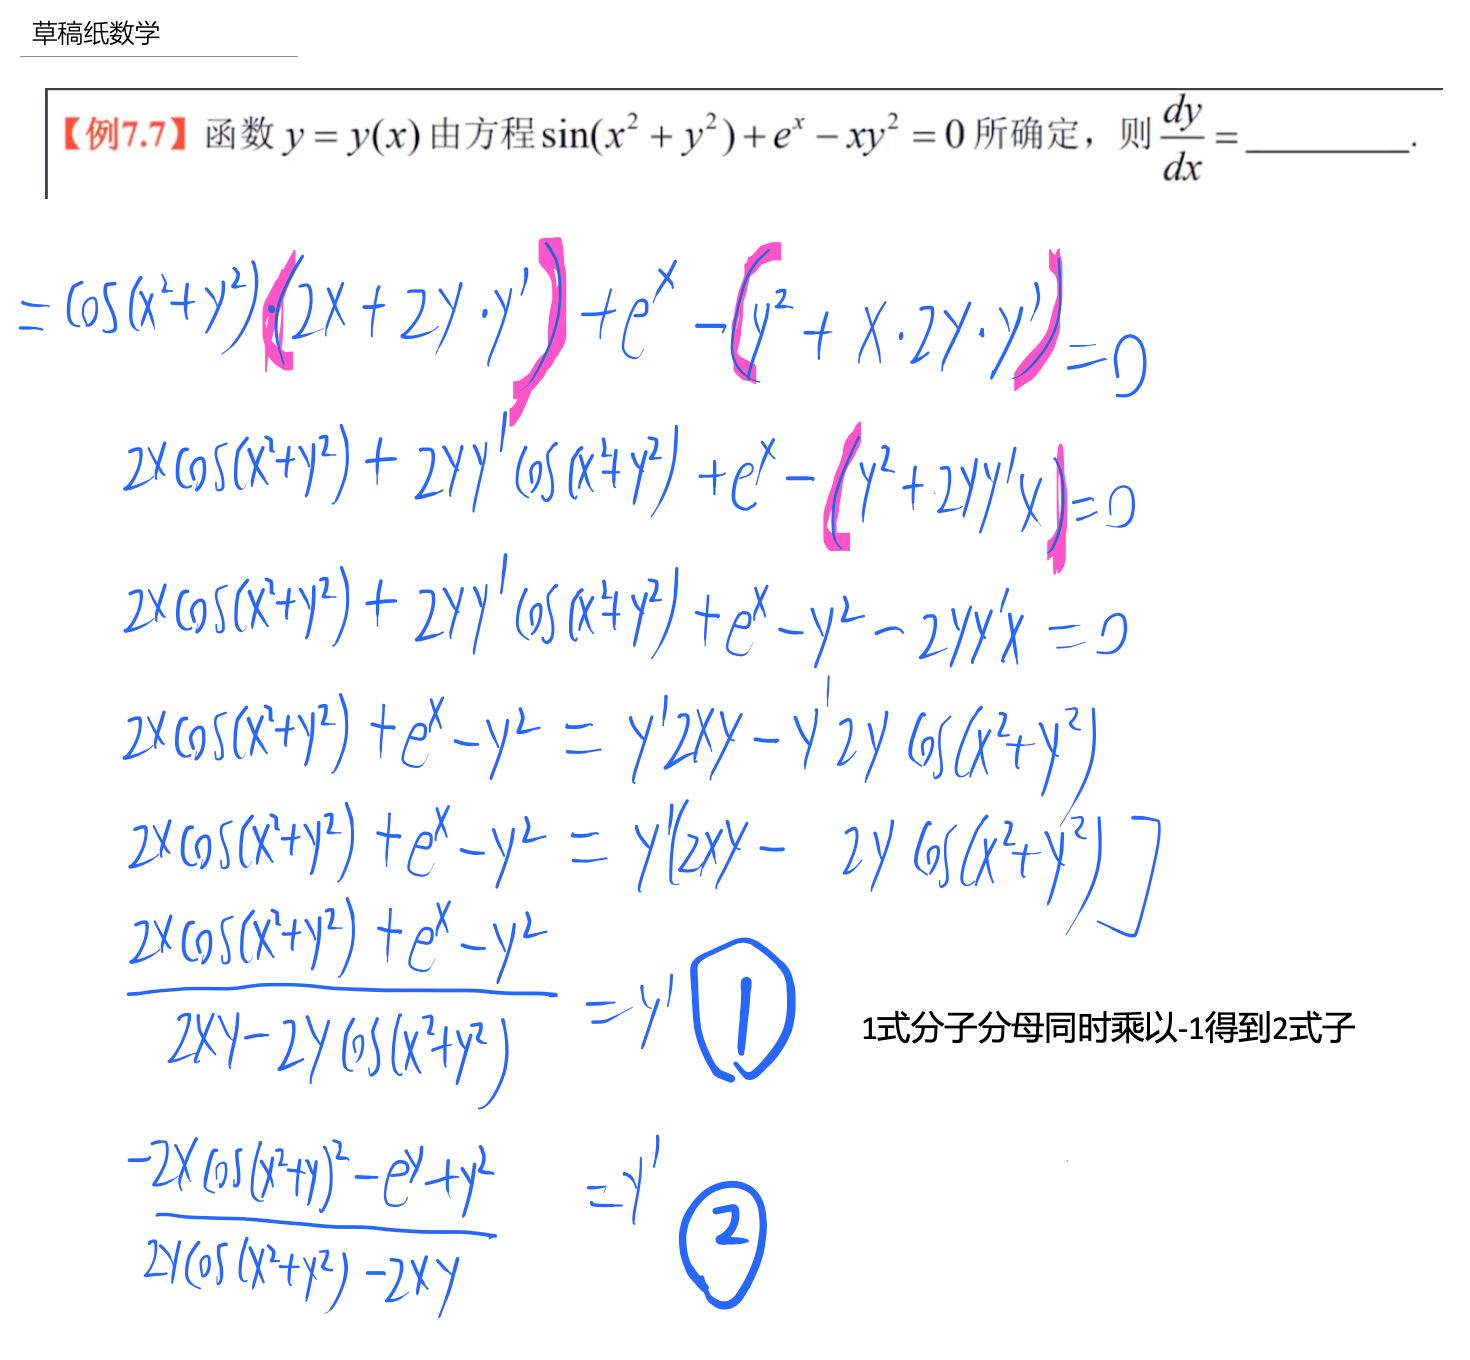 草稿纸数学
【例7.7】函数 y = y(x) 由方程 sin(x² + y²) + eˣ − xy² = 0 所确定，则 dy/dx = ________.
= cos(x²+y²)·(2x + 2y·y') + eˣ − (y² + x·2y·y') = 0
2x cos(x²+y²) + 2yy' cos(x²+y²) + eˣ − (y² + 2yy'x) = 0
2x cos(x²+y²) + 2yy' cos(x²+y²) + eˣ − y² − 2yy'x = 0
2x cos(x²+y²) + eˣ − y² = y'2xy − y'2y cos(x²+y²)
2x cos(x²+y²) + eˣ − y² = y'(2xy − 2y cos(x²+y²)]
2x cos(x²+y²) + eˣ − y²
2xy − 2y cos(x²+y²)
= y' 1
1式分子分母同时乘以-1得到2式子
−2x cos(x²+y)² − e^y + y²
2y cos(x²+y²) − 2xy
= y' 2